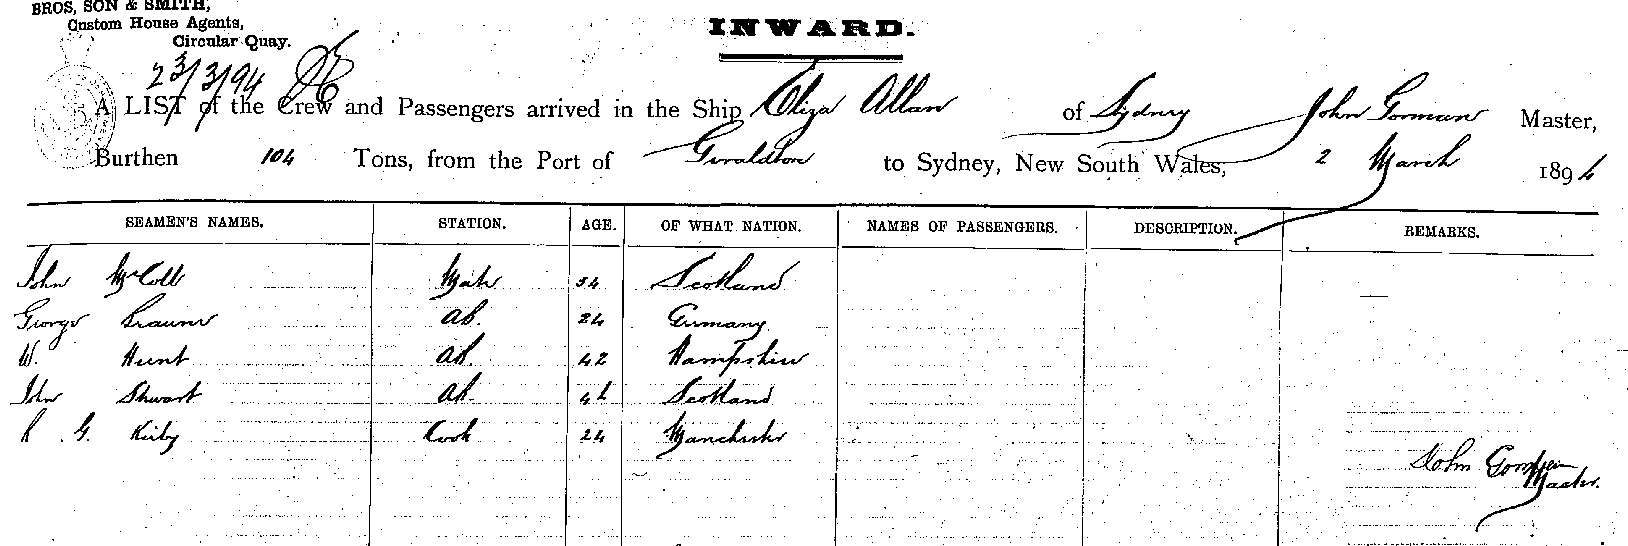 BROS, SON & SMITH,
Custom House Agents,
Circular Quay.
23/3/94
INWARD.
A LIST of the Crew and Passengers arrived in the Ship Eliza Allan of Sydney John Gorman Master,
Burthen 104 Tons, from the Port of Geraldton to Sydney, New South Wales, 2 March 1894
SEAMEN'S NAMES. STATION. AGE. OF WHAT NATION. NAMES OF PASSENGERS. DESCRIPTION. REMARKS.
John McColl Mate 54 Scotland —
George Brauer AB. 24 Germany
W. Hunt AB. 42 Hampshire
John Stewart AB. Scotland
R. G. Kirby Cook 24 Manchester
John Gorman
Master.